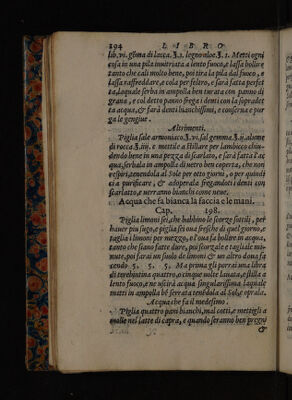 194 LIBRO
lib.vi. gſma di lacca. ʒ.i. legno aloe.ʒ.i. Metti ogni
coſa in una pila inuitriata a lento fuoco, e laſſa bollire
tanto che cali molto bene, poi tira la pila dal fuoco, e
laſſa raffreddare, e cola per feltro, e ſarà fatta perfet
ta, laquale ſerba in ampolla ben turata con panno di
grana, e col detto panno frega i denti con la ſopradet
ta acqua, & farà denti bianchiſſimi, e conſerua e pur
ga le gengiue.
Altrimenti.
Piglia ſale armoniaco.ʒ.vi. ſal gemma.ʒ.ii. alume
di rocca.ʒ.iii. e mettile a ſtillare per lambicco chiu
dendo bene in una pezza di ſcarlato, e ſarà fatta l'ac
qua, ſerbala in ampolla di uetro ben coperta, che non
reſpiri, tenendola al Sole per otto giorni, o per quindi
ci a purificare, & adoperala fregandoti i denti con
ſcarlatto, e uerranno bianchi come neue.
Acqua che fa bianca la faccia e le mani.
Cap. 198.
Piglia limoni ſei, che habbino le ſcorze ſottili, per
hauer piu ſugo, e piglia ſei oua freſche di quel giorno, e
taglia i limoni per mezzo, e l'oua fa bollire in acqua,
tanto che ſiano fatte dure, poi ſcorzale e tagliale mi-
nute, poi farai un ſuolo de limoni & un altro d'oua fa
cendo .5. .5. .5. Ma prima gli porrai una libra
di terebintina quattro, o cinque uolte lauata, e ſtilla a
lento fuoco, e ne uſcirà acqua ſingulariſſima, laquale
metti in ampolla bē ſerrata tenēdola al Sole
Acqua che fa il medeſimo.
Piglia quattro pani bianchi, mal cotti, e mettigli a
molle nel latte di capra, e quando ſeranno ben pregni
&